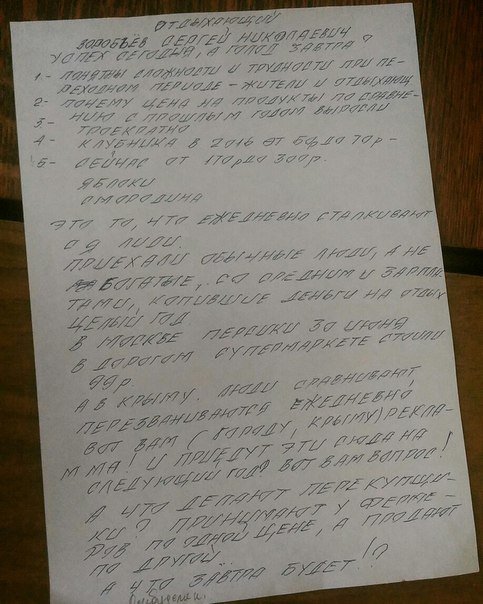 ОТДЫХАЮЩИЙ
ВОРОБЬЁВ СЕРГЕЙ НИКОЛАЕВИЧ
УСПЕХ СЕГОДНЯ, А ГОЛОД ЗАВТРА?
1 - ПОНЯТНЫ СЛОЖНОСТИ И ТРУДНОСТИ ПРИ ПЕ-
РЕХОДНОМ ПЕРИОДЕ - ЖИТЕЛИ И ОТДЫХАЮЩ
2 - ПОЧЕМУ ЦЕНА НА ПРОДУКТЫ ПО СРАВНЕ-
3 - НИЮ С ПРОШЛЫМ ГОДОМ ВЫРОСЛИ
ТРОЕКРАТНО
4 - КЛУБНИКА В 2016 ОТ 50 ДО 70р -
5 - СЕЙЧАС ОТ 170р ДО 300р.
ЯБЛОКИ
СМОРОДИНА
ЭТО ТО, ЧТО ЕЖЕДНЕВНО СТАЛКИВАЮТ
СЯ ЛЮДИ.
ПРИЕХАЛИ ОБЫЧНЫЕ ЛЮДИ, А НЕ
БОГАТЫЕ, СО СРЕДНИМИ ЗАРПЛА
ТАМИ, КОПИВШИЕ ДЕНЬГИ НА ОТДЫХ
ЦЕЛЫЙ ГОД
В МОСКВЕ ПЕРСИКИ 30 ИЮНЯ
В ДОРОГОМ СУПЕРМАРКЕТЕ СТОИЛИ
99р.
А В КРЫМУ. ЛЮДИ СРАВНИВАЮТ,
ПЕРЕЗВАНИВАЮТСЯ ЕЖЕДНЕВНО,
ВОТ ВАМ (ГОРОДУ, КРЫМУ) РЕКЛА-
М МА! И ПРИЕДУТ ЭТИ СЮДА НА
СЛЕДУЮЩИЙ ГОД? ВОТ ВАМ ВОПРОС!
А ЧТО ДЕЛАЮТ ПЕРЕКУПЩИ-
КИ? ПРИНИМАЮТ У ФЕРМЕ-
РОВ ПО ОДНОЙ ЦЕНЕ, А ПРОДАЮТ
ПО ДРУГОЙ.
А ЧТО ЗАВТРА БУДЕТ!?